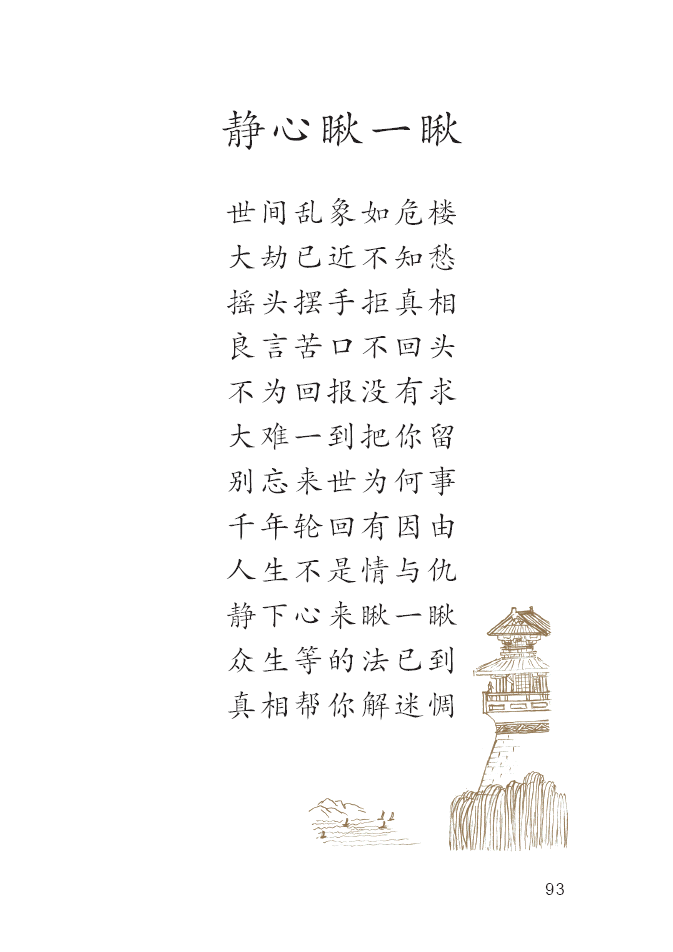 静心瞅一瞅
世间乱象如危楼
大劫已近不知愁
摇头摆手拒真相
良言苦口不回头
不为回报没有求
大难一到把你留
别忘来世为何事
千年轮回有因由
人生不是情与仇
静下心来瞅一瞅
众生等的法已到
真相帮你解迷惆
93